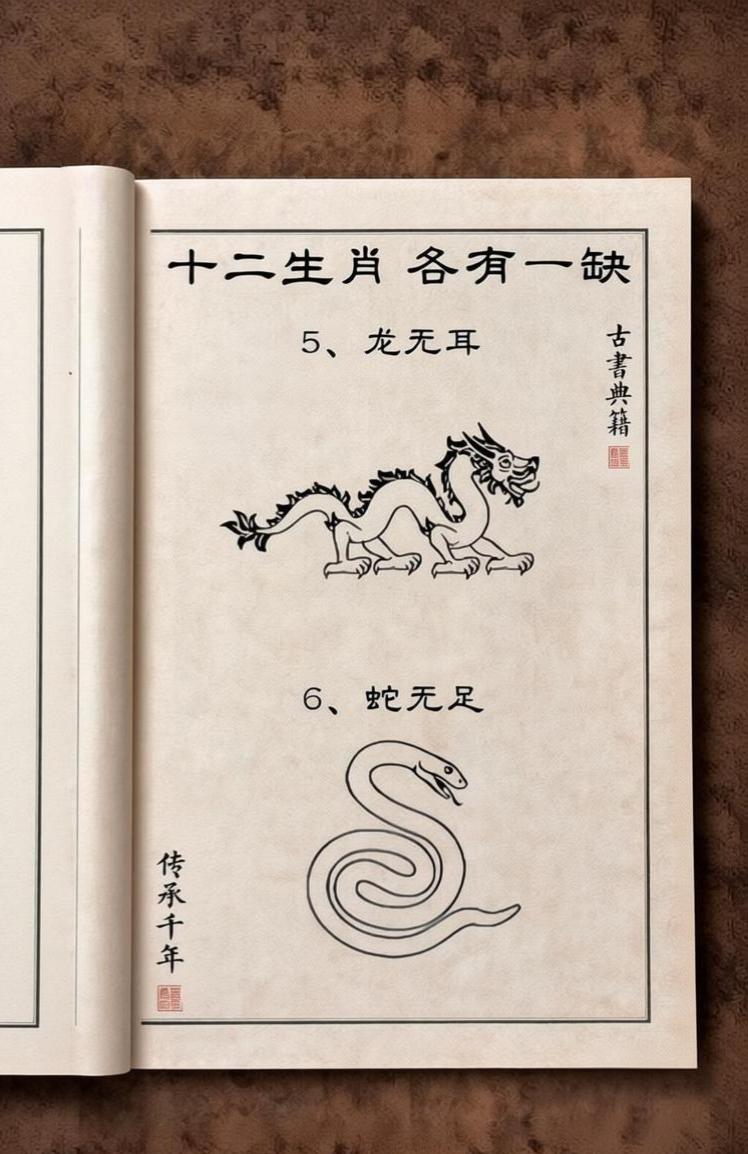 十二生肖 各有一缺
5、龙无耳
古書典籍
6、蛇无足
传承千年